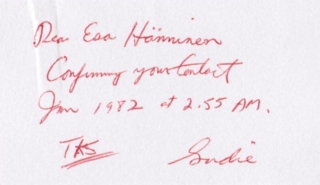 Dea Esa Hänninen
Confirming your Contact
Jan 1982 at 2.55 AM.
TKS